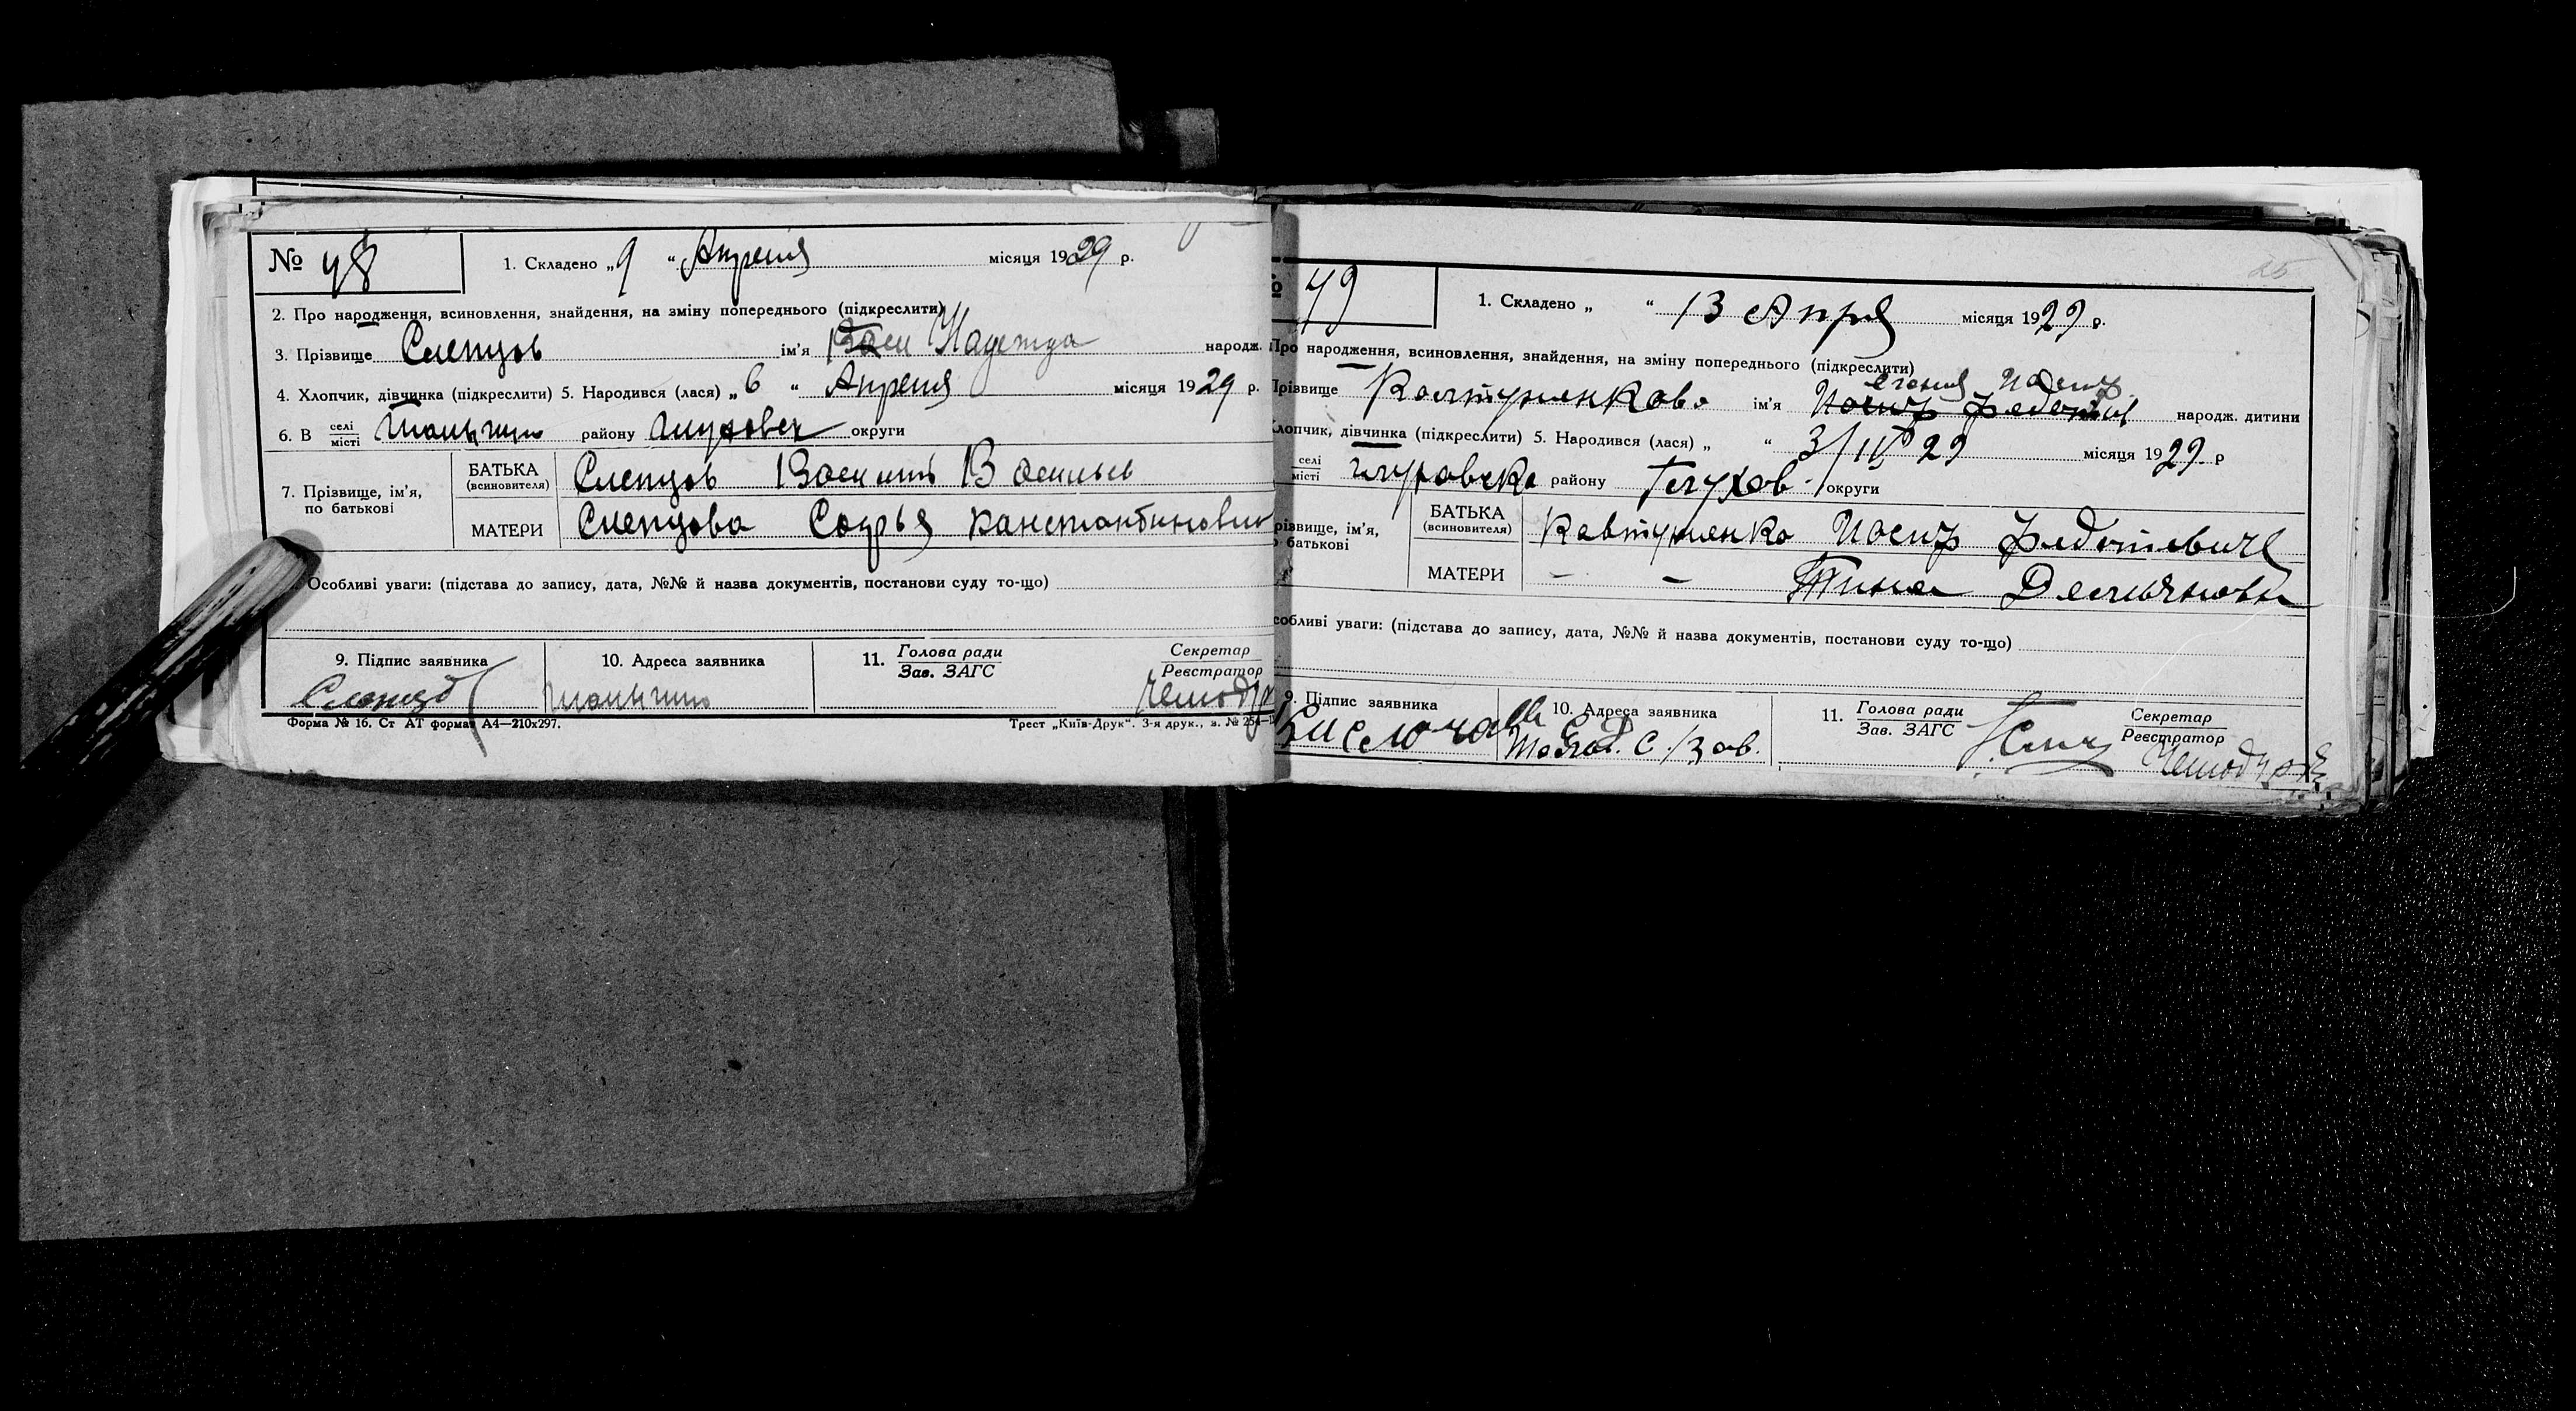 № 48 1. Складено „9 “ Апреля місяця 1929 р.
2. Про народження, всиновлення, знайдення, на зміну попереднього (підкреслити)
3. Прізвище Слепцов ім'я Васи Надежда народж.
4. Хлопчик, дівчинка (підкреслити) 5. Народився (лася) „6 “ Апреля місяця 1929 р.
6. В селі місті району округи
7. Прізвище, ім'я, по батькові
БАТЬКА (всиновителя) Слепцов Василь Василье
МАТЕРИ Слепцова Софья Канстантиновн
Особливі уваги: (підстава до запису, дата, №№ й назва документів, постанови суду то-що)
9. Підпис заявника 10. Адреса заявника 11. Голова ради Зав. ЗАГС Секретар Реєстратор
Форма № 16. Ст АТ формат А4—210х297. Трест „Київ-Друк“. 3-я друк., з. № 254—1
25
49 1. Складено „ “ 13 Апря місяця 1929 р.
Про народження, всиновлення, знайдення, на зміну попереднього (підкреслити)
Прізвище ім'я Иосиф народж. дитини
Иосиф Федотов
хлопчик, дівчинка (підкреслити) 5. Народився (лася) „ “ 3/IV 29 місяця 1929 р
селі місті району Глухов округи
різвище, ім'я, по батькові
БАТЬКА (всиновителя) Кавтуненко Иосиф Федотевиче
МАТЕРИ — — Демьяновн
собливі уваги: (підстава до запису, дата, №№ й назва документів, постанови суду то-що)
9. Підпис заявника 10. Адреса заявника 11. Голова ради Зав. ЗАГС Секретар Реєстратор